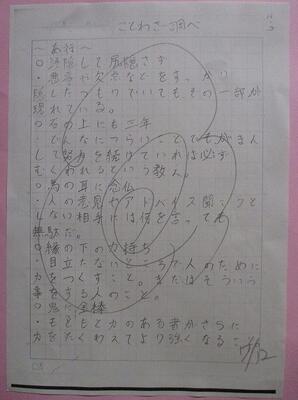 ことわざ調べ
〜あ行〜
○頭隠して尻隠さず
・悪事や欠点などをすっかり
隠したつもりでいてもその一部が
現れている。
○石の上にも三年
・どんなにつらいことでもがまん
して努力を続けていれば必ず
むくわれるという教え。
○馬の耳に念仏
・人の意見やアドバイス聞こうと
しない相手には何を言っても
無駄だ。
○縁の下の力持ち
・目立たないところで人のために
力をつくすこと。またはそういう
事をする人のこと。
○鬼に金棒
・もともと力のある者がさらに
力をたくわえてより強くなること